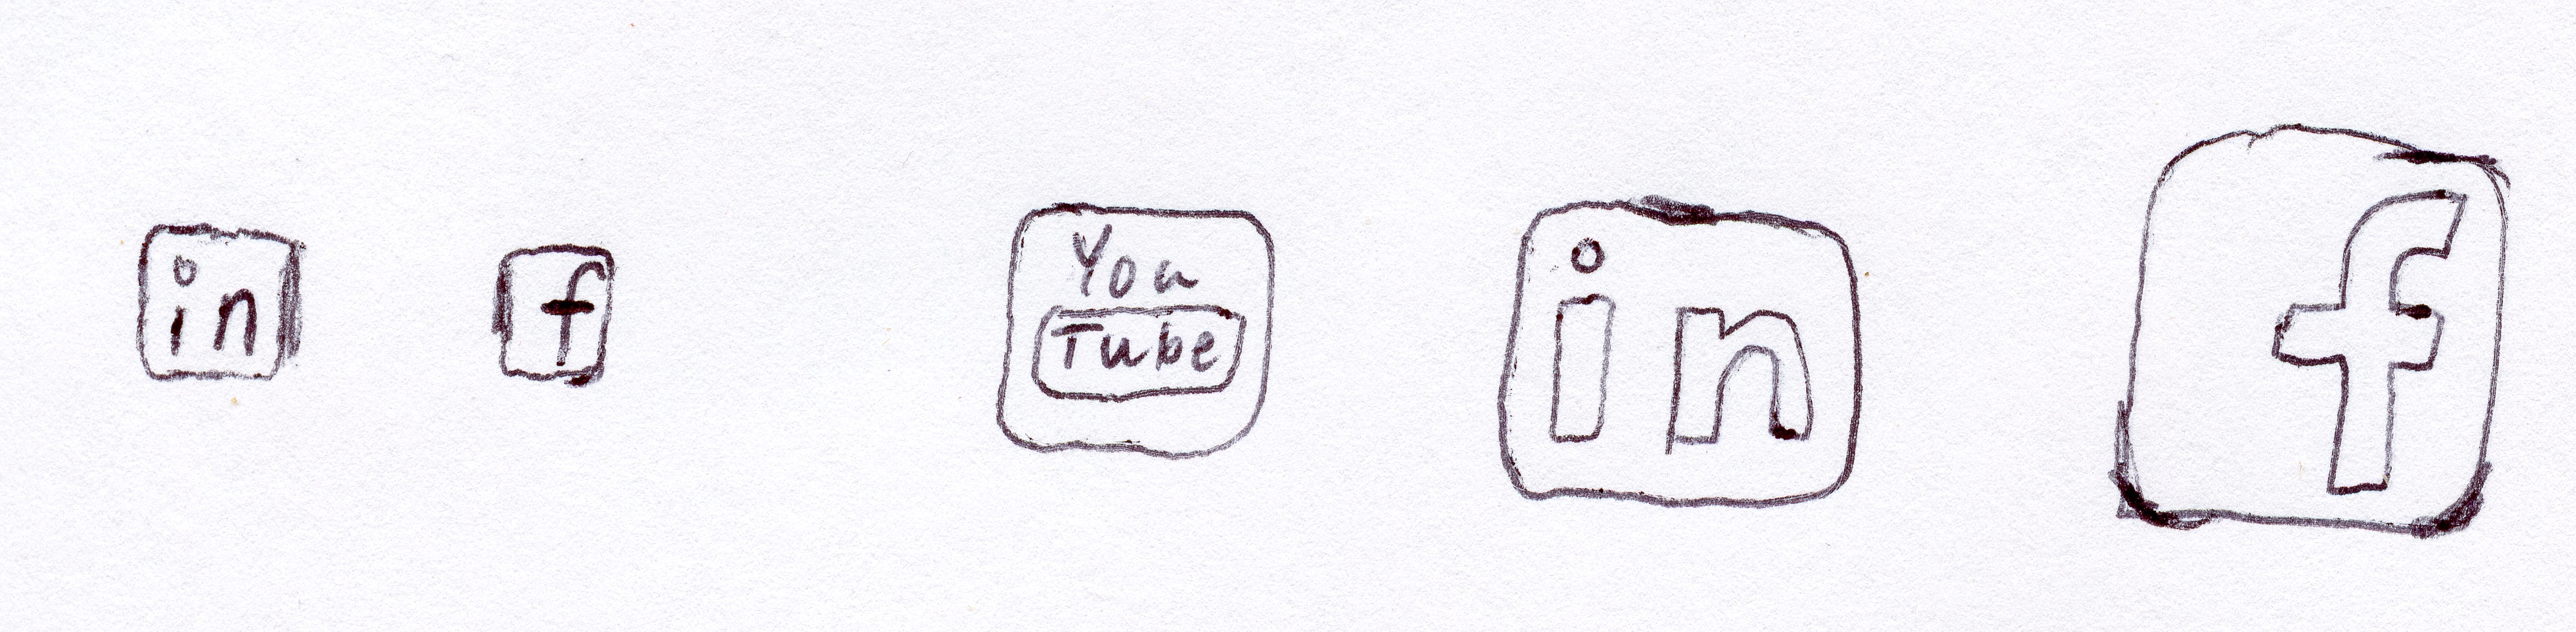 in
f
You
Tube
in
f